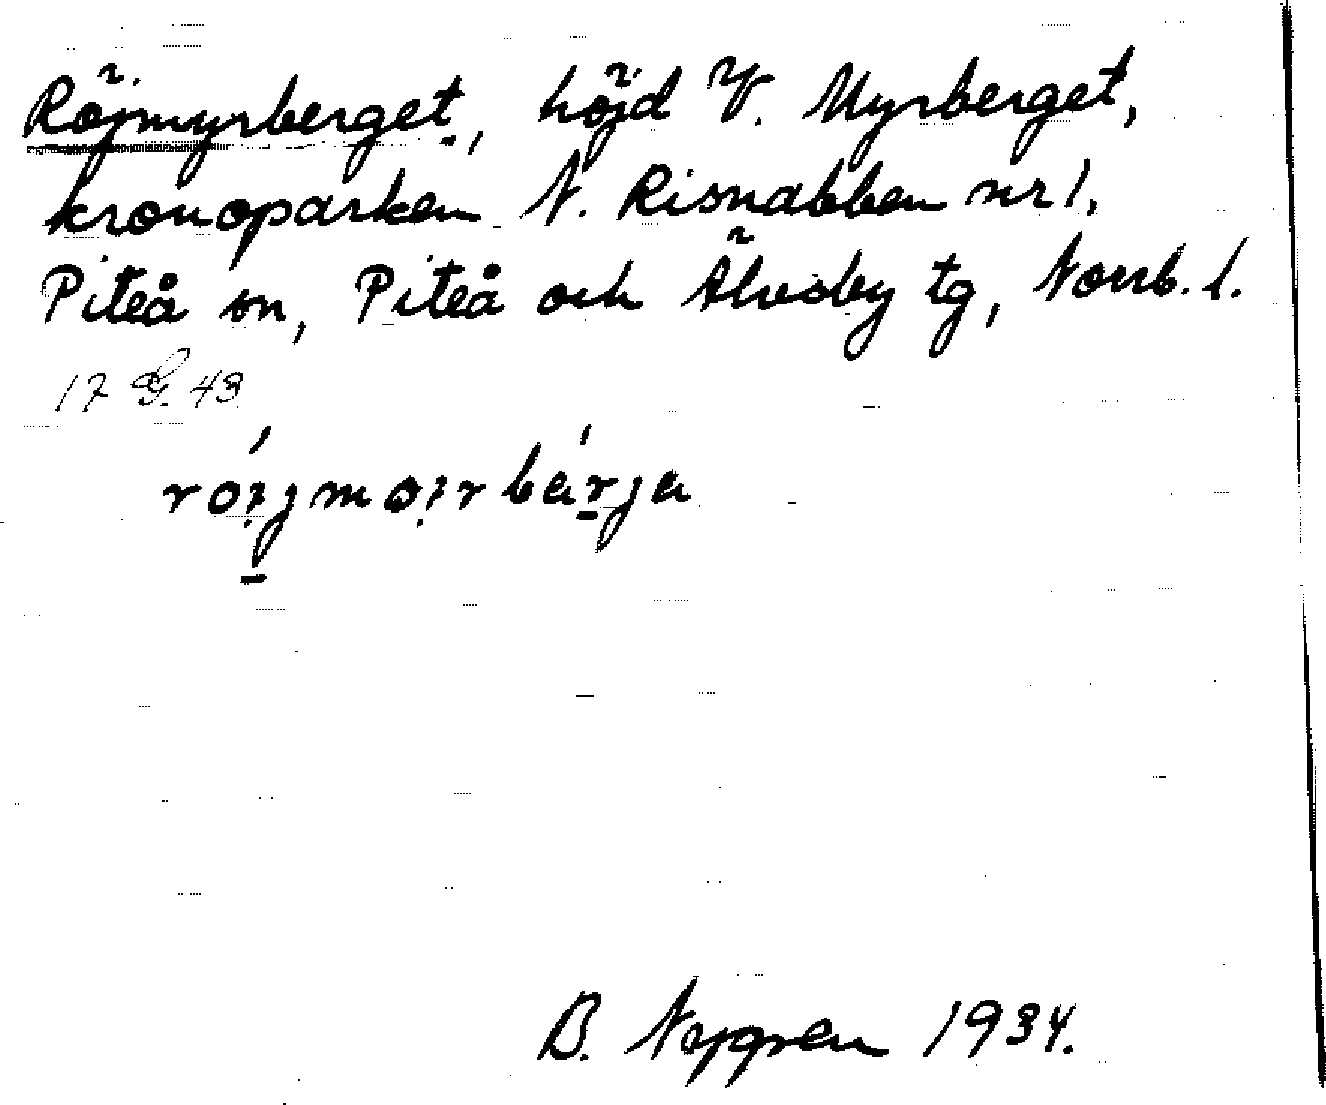 Röjmyrberget, höjd V. Myrberget,
kronoparken N. Risnabben nr 1,
Piteå sn, Piteå och Älvsby tg, Norrb. l.
17 43
B. Nygren 1934.